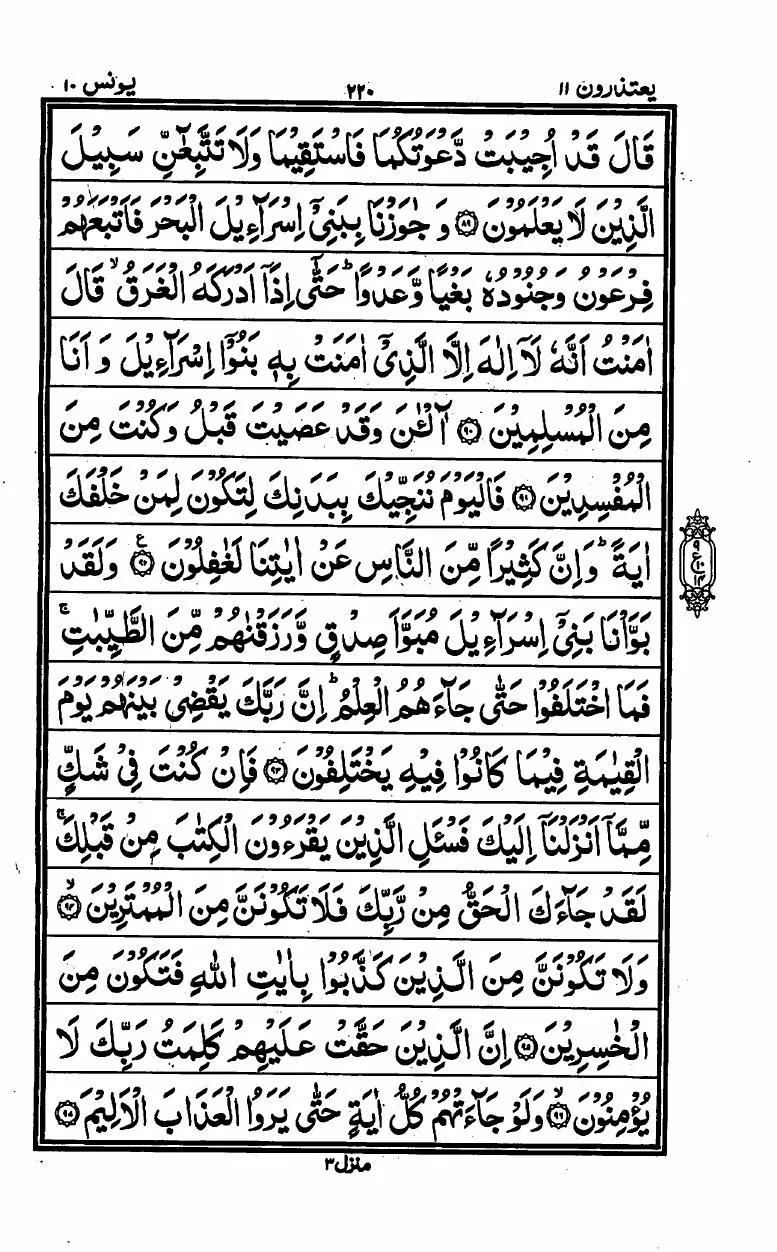 يعتذرون ١١ ٢٢٠ يونس ١٠
قَالَ قَدْ اُجِيْبَتْ دَّعْوَتُكُمَا فَاسْتَقِيْمَا وَلَا تَتَّبِعٰٓنِّ سَبِيْلَ
الَّذِيْنَ لَا يَعْلَمُوْنَ ﴿٨٩﴾ وَ جٰوَزْنَا بِبَنِيْٓ اِسْرَآءِيْلَ الْبَحْرَ فَاَتْبَعَهُمْ
فِرْعَوْنُ وَجُنُوْدُهٗ بَغْيًا وَّعَدْوًا ؕ حَتّٰٓى اِذَاۤ اَدْرَكَهُ الْغَرَقُ ۙ قَالَ
اٰمَنْتُ اَنَّهٗ لَاۤ اِلٰهَ اِلَّا الَّذِيْٓ اٰمَنَتْ بِهٖ بَنُوْٓا اِسْرَآءِيْلَ وَ اَنَا
مِنَ الْمُسْلِمِيْنَ ﴿٩٠﴾ آٰلْـٰٔنَ وَقَدْ عَصَيْتَ قَبْلُ وَكُنْتَ مِنَ
الْمُفْسِدِيْنَ ﴿٩١﴾ فَالْيَوْمَ نُنَجِّيْكَ بِبَدَنِكَ لِتَكُوْنَ لِمَنْ خَلْفَكَ
اٰيَةً ؕ وَاِنَّ كَثِيْرًا مِّنَ النَّاسِ عَنْ اٰيٰتِنَا لَغٰفِلُوْنَ ﴿٩٢﴾ ع وَلَقَدْ
بَوَّاْنَا بَنِيْٓ اِسْرَآءِيْلَ مُبَوَّاَ صِدْقٍ وَّرَزَقْنٰهُمْ مِّنَ الطَّيِّبٰتِ ۚ
فَمَا اخْتَلَفُوْا حَتّٰى جَآءَهُمُ الْعِلْمُ ؕ اِنَّ رَبَّكَ يَقْضِيْ بَيْنَهُمْ يَوْمَ
الْقِيٰمَةِ فِيْمَا كَانُوْا فِيْهِ يَخْتَلِفُوْنَ ﴿٩٣﴾ فَاِنْ كُنْتَ فِيْ شَكٍّ
مِّمَّاۤ اَنْزَلْنَاۤ اِلَيْكَ فَسْـَٔلِ الَّذِيْنَ يَقْرَءُوْنَ الْكِتٰبَ مِنْ قَبْلِكَ ۚ
لَقَدْ جَآءَكَ الْحَقُّ مِنْ رَّبِّكَ فَلَا تَكُوْنَنَّ مِنَ الْمُمْتَرِيْنَ ۙ﴿٩٤﴾
وَلَا تَكُوْنَنَّ مِنَ الَّذِيْنَ كَذَّبُوْا بِاٰيٰتِ اللّٰهِ فَتَكُوْنَ مِنَ
الْخٰسِرِيْنَ ﴿٩٥﴾ اِنَّ الَّذِيْنَ حَقَّتْ عَلَيْهِمْ كَلِمَتُ رَبِّكَ لَا
يُؤْمِنُوْنَ ۙ﴿٩٦﴾ وَلَوْ جَآءَتْهُمْ كُلُّ اٰيَةٍ حَتّٰى يَرَوُا الْعَذَابَ الْاَلِيْمَ ﴿٩٧﴾
٩
ع ١٠
١٤
منزل ٣